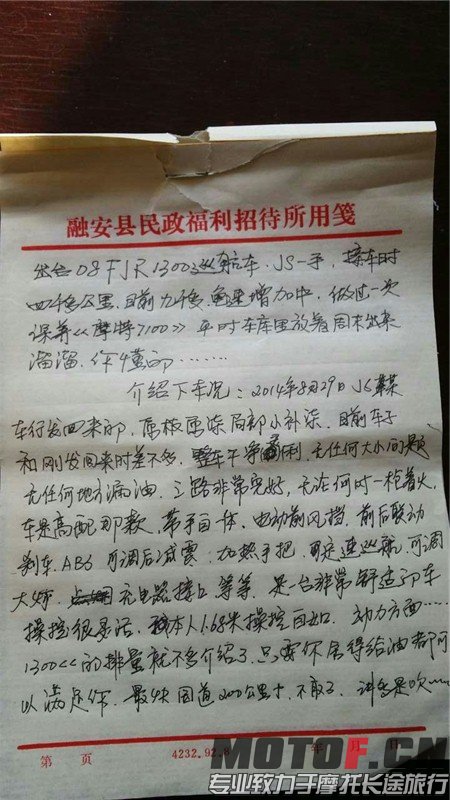 融安县民政福利招待所用笺
出售08 FJR1300巡航车、JS一手，接车时
四千多公里，目前九千多，龟速增加中，做过一次
保养《摩特7100》平时车库里放着周末出来
溜溜，你懂的………
介绍下车况：2014年8月29日JS某某
车行发回来的，原板原漆局部小补漆，目前车子
和刚发回来时差不多，整车干净利，无任何大小问题
无任何地方漏油，三路非常完好，无论何时一枪着火，
车是高配那款，带手自一体，电动前风挡，前后联动
刹车，ABS 可调后减震，加热手把，可定速巡航，可调
大灯，充电器接口等等，是一台非常舒适的车
操控很灵活，我本人1.68米操控自如，动力方面……
1300cc的排量就不多介绍了，只要你舍得给油都可
以满足你，最快国道200公里+，不敢了，讲多是吹……
第 页
4232.92.8
年 月 日
MOTOF.CN
专业致力于摩托长途旅行